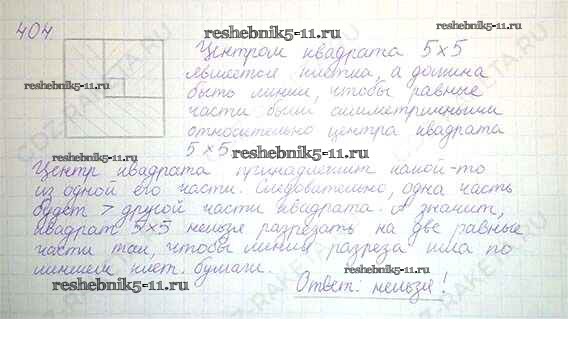 404.
reshebnik5-11.ru
Центром квадрата 5×5
reshebnik5-11.ru
является клетка, а должна
reshebnik5-11.ru
быть линия, чтобы равные
части были симметричными
относительно центра квадрата
reshebnik5-11.ru
5×5.
Центр квадрата принадлежит какой-то
из одной его части. Следовательно, одна часть
будет > другой части квадрата. А значит,
квадрат 5×5 нельзя разрезать на две равные
части так, чтобы линия разреза шла по
линиям клет. бумаги.
reshebnik5-11.ru
Ответ: нельзя!
reshebnik5-11.ru
GDZ-RAKETA.RU